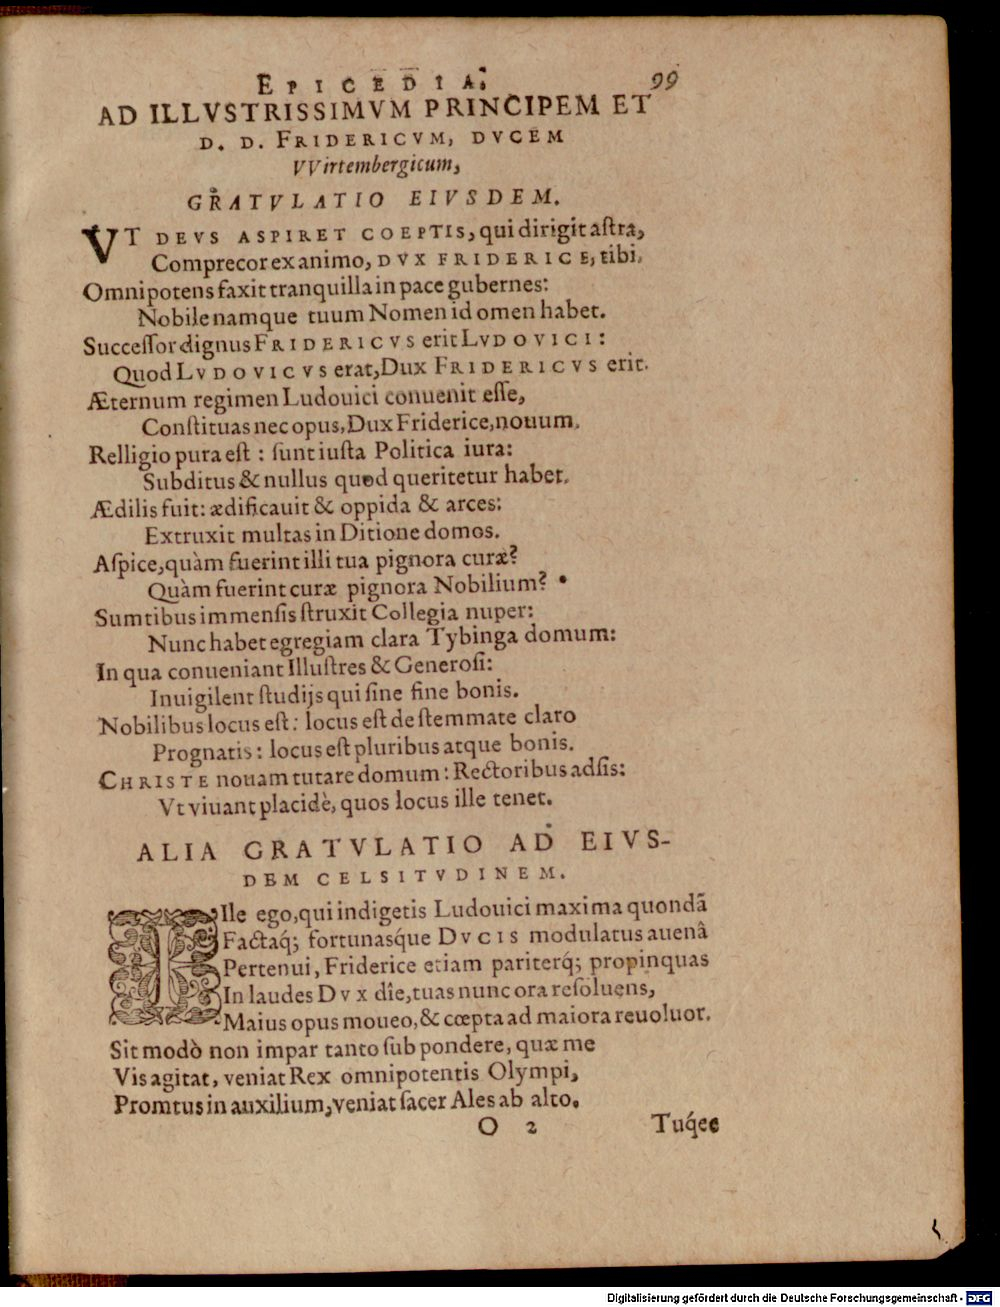 EPICEDIA. 99
AD ILLVSTRISSIMVM PRINCIPEM ET
D. D. FRIDERICVM, DVCEM
VVirtembergicum,
GRATVLATIO EIVSDEM.
VT DEVS ASPIRET COEPTIS, qui dirigit astra,
Comprecor ex animo, DVX FRIDERICE, tibi.
Omnipotens faxit tranquilla in pace gubernes:
Nobile namque tuum Nomen id omen habet.
Successor dignus FRIDERICVS erit LVDOVICI:
Quod LVDOVICVS erat, Dux FRIDERICVS erit.
Æternum regimen Ludouici conuenit esse,
Constituas nec opus, Dux Friderice, nouum.
Relligio pura est : sunt iusta Politica iura:
Subditus & nullus quod queritetur habet.
Ædilis fuit: ædificauit & oppida & arces:
Extruxit multas in Ditione domos.
Aspice, quàm fuerint illi tua pignora curæ?
Quàm fuerint curæ pignora Nobilium?
Sumtibus immensis struxit Collegia nuper:
Nunc habet egregiam clara Tybinga domum:
In qua conueniant Illustres & Generosi:
Inuigilent studijs qui sine fine bonis.
Nobilibus locus est: locus est de stemmate claro
Prognatis: locus est pluribus atque bonis.
CHRISTE nouam tutare domum: Rectoribus adsis:
Vt viuant placidè, quos locus ille tenet.
ALIA GRATVLATIO AD EIVS-
DEM CELSITVDINEM.
Ille ego, qui indigetis Ludouici maxima quondã
Factaq́; fortunasq́ue DVCIS modulatus auenâ
Pertenui, Friderice etiam pariterq́; propinquas
In laudes DVX dîe, tuas nunc ora resoluens,
Maius opus moueo, & cœpta ad maiora reuoluor.
Sit modò non impar tanto sub pondere, quæ me
Vis agitat, veniat Rex omnipotentis Olympi,
Promtus in auxilium, veniat sacer Ales ab alto.
O 2 Tuq́ee
Digitalisierung gefördert durch die Deutsche Forschungsgemeinschaft - DFG